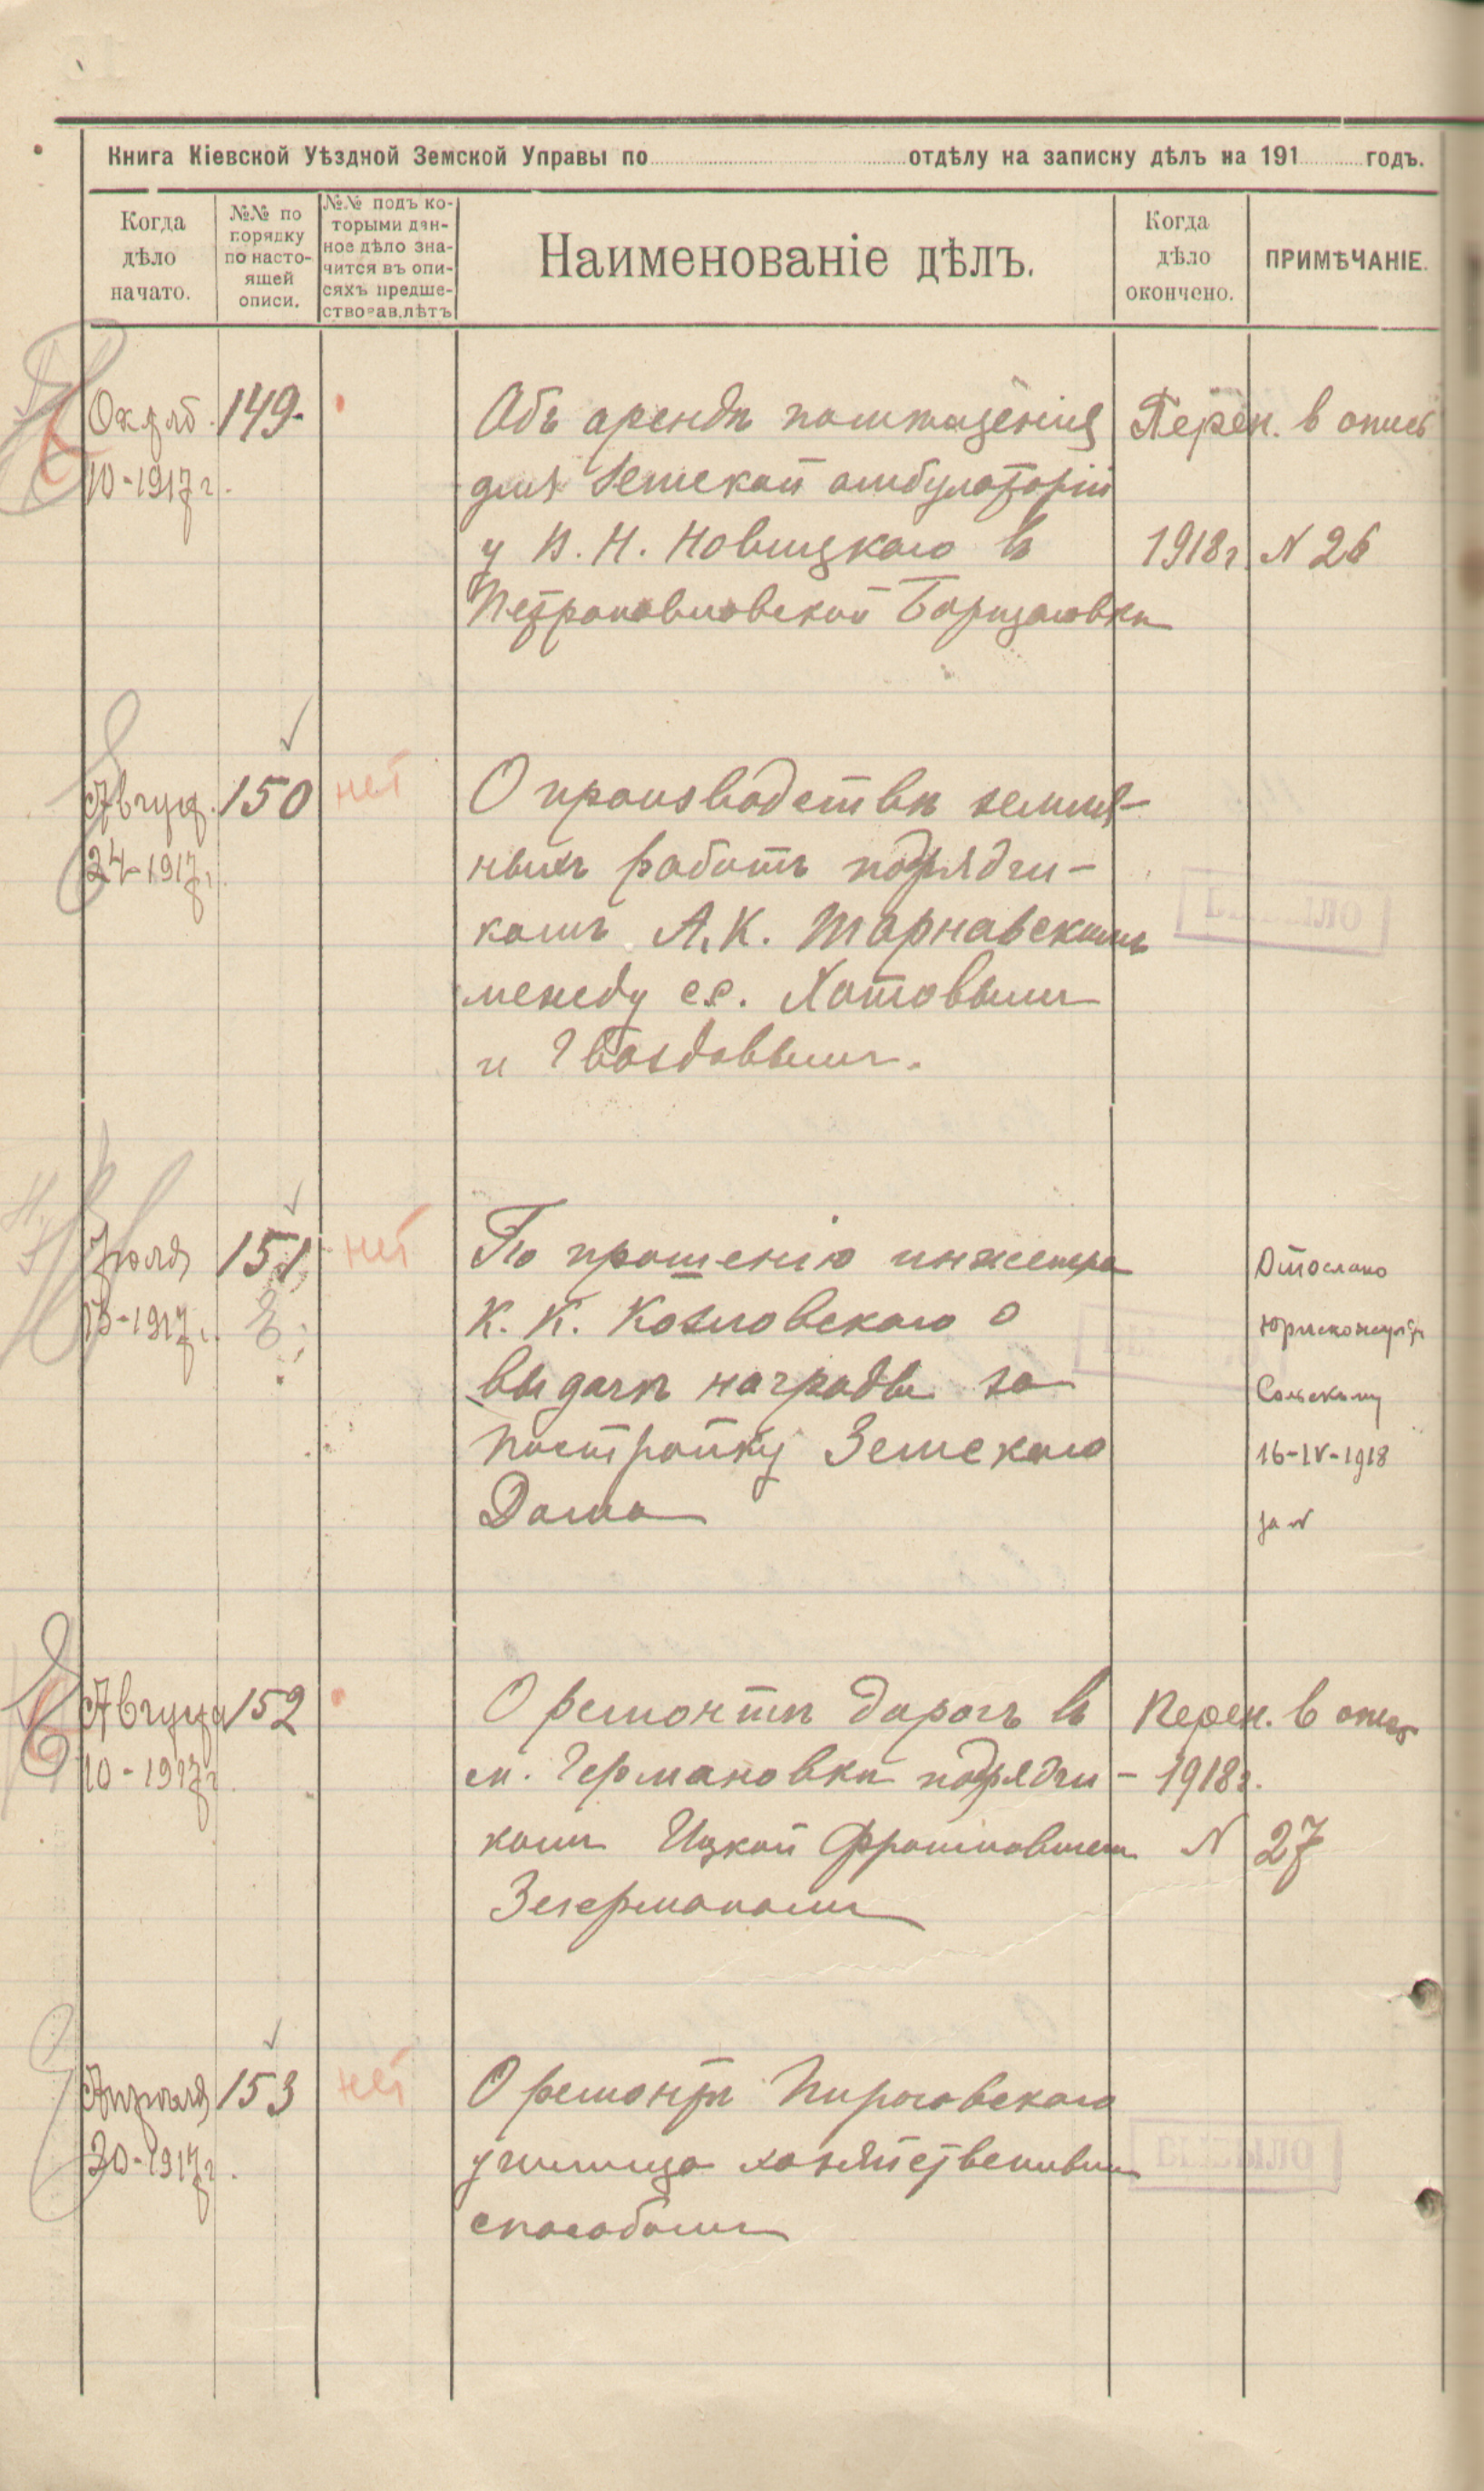 Книга Кіевской Уѣздной Земской Управы по отдѣлу на записку дѣлъ на 191 годъ.
Когда дѣло начато.
№№ по порядку по насто-ящей описи.
№№ подъ ко-торыми дан-ное дѣло зна-чится въ опи-сяхъ предше-ствовав.лѣтъ
Наименованіе дѣлъ.
Когда дѣло окончено.
ПРИМѢЧАНІЕ.
Октяб. 149. Объ арендѣ помѣщенія Перен. в опись
10-1917 г. для Земской амбулаторіи
у В. Н. Новицкаго въ 1918 г. N 26
Петропавловской Борщаговкѣ
Август. 150 нет О производствѣ земля-
24-1917 г. ныхъ работъ подрядчи-
комъ А. К. Тарнавскимъ
между с.с. Хотовымъ
и Гвоздовымъ.
Іюля 151 нет По прошенію инженера Отослано
13-1917 г. К. К. Козловскаго о Юрисконсульту
выдачѣ награды за Сольскому
постройку Земскаго 16-IV-1918
Дома за N
Августа 152 О ремонтѣ дорогъ въ Перен. в опись
10-1917 г. м. Германовкѣ подрядчи- 1918 г.
комъ Ицкой Фроимовичем N 27
Зегерманомъ
Апреля 153 нет О ремонтѣ Пироговскаго
30-1917 г. училища хозяйственнымъ
способомъ